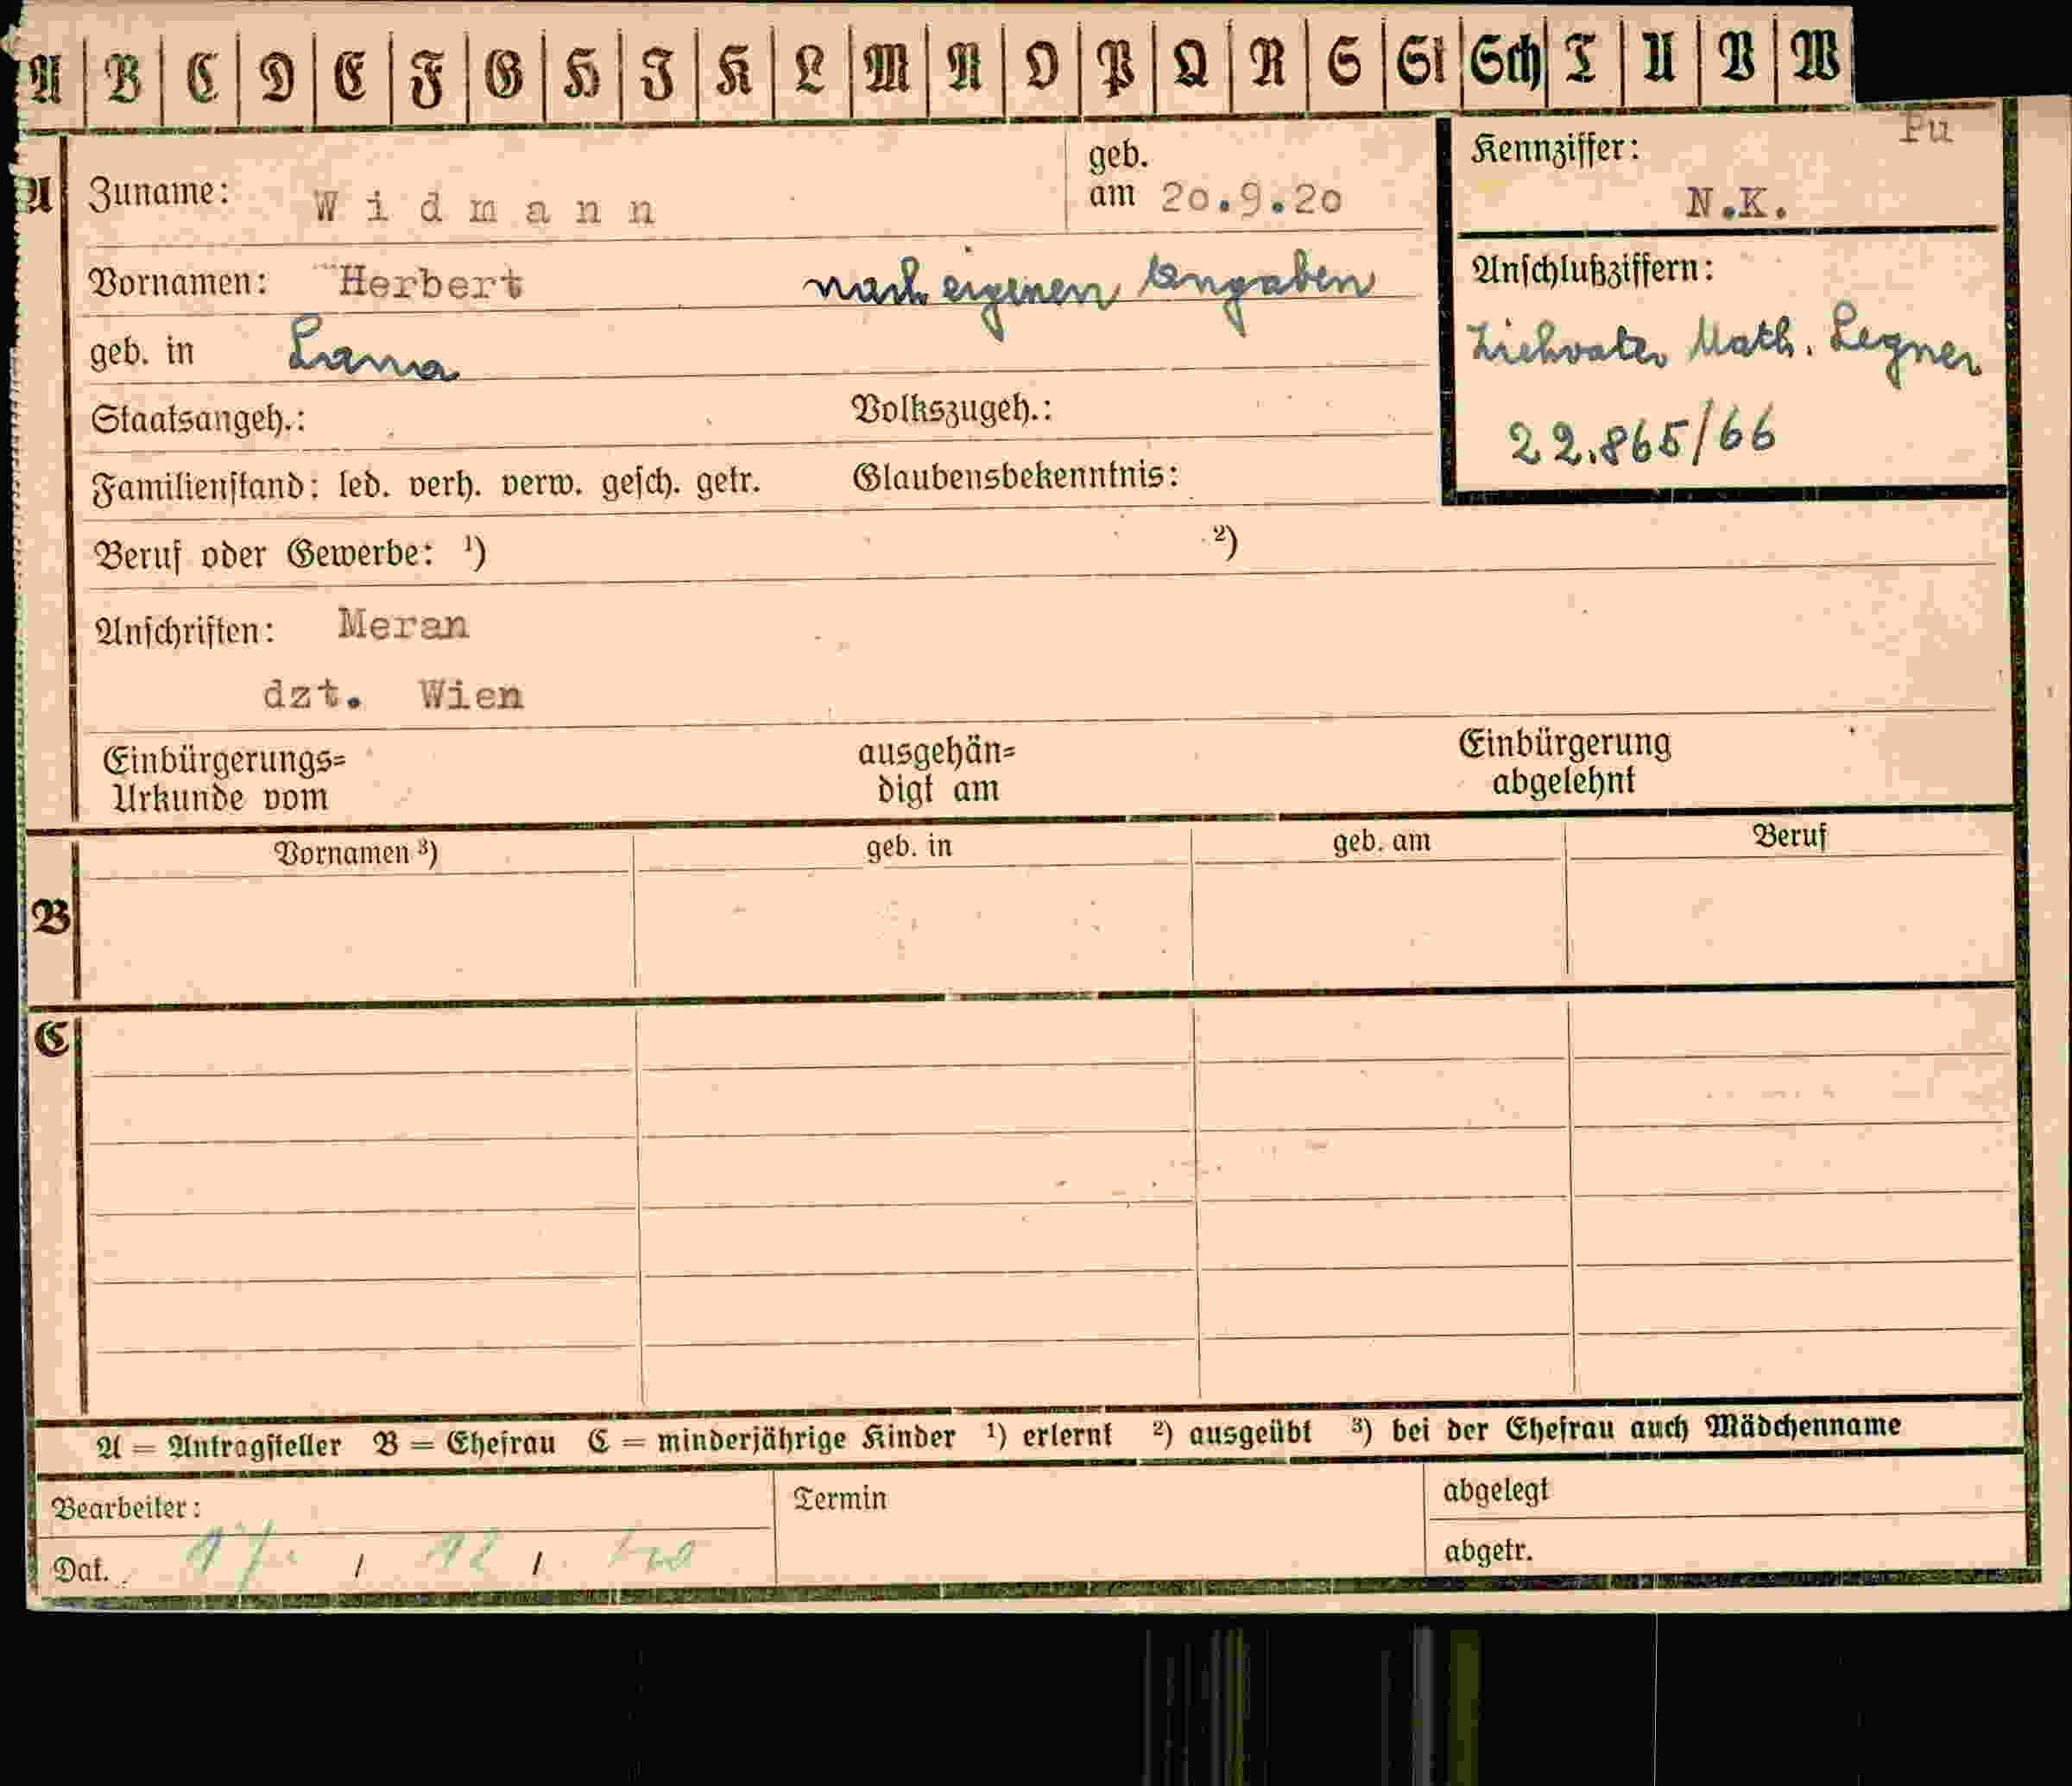 A B C D E F G H J K L M N O P Q R S St Sch T U V W
Pu
A
Zuname: Widmann
geb. am 20.9.20
Kennziffer: N.K.
Vornamen: Herbert nach eigenen Angaben
Anschlußziffern:
Ziehvater Math. Legner
22.865/66
geb. in Lana
Staatsangeh.: Volkszugeh.:
Familienstand: led. verh. verw. gesch. getr. Glaubensbekenntnis:
Beruf oder Gewerbe: ¹) ²)
Anschriften: Meran
dzt. Wien
Einbürgerungs= ausgehän= Einbürgerung
Urkunde vom digt am abgelehnt
Vornamen ³) geb. in geb. am Beruf
B
C
A = Antragsteller B = Ehefrau C = minderjährige Kinder ¹) erlernt ²) ausgeübt ³) bei der Ehefrau auch Mädchenname
Bearbeiter: Termin abgelegt
Dat. 17. / 12 / abgetr.